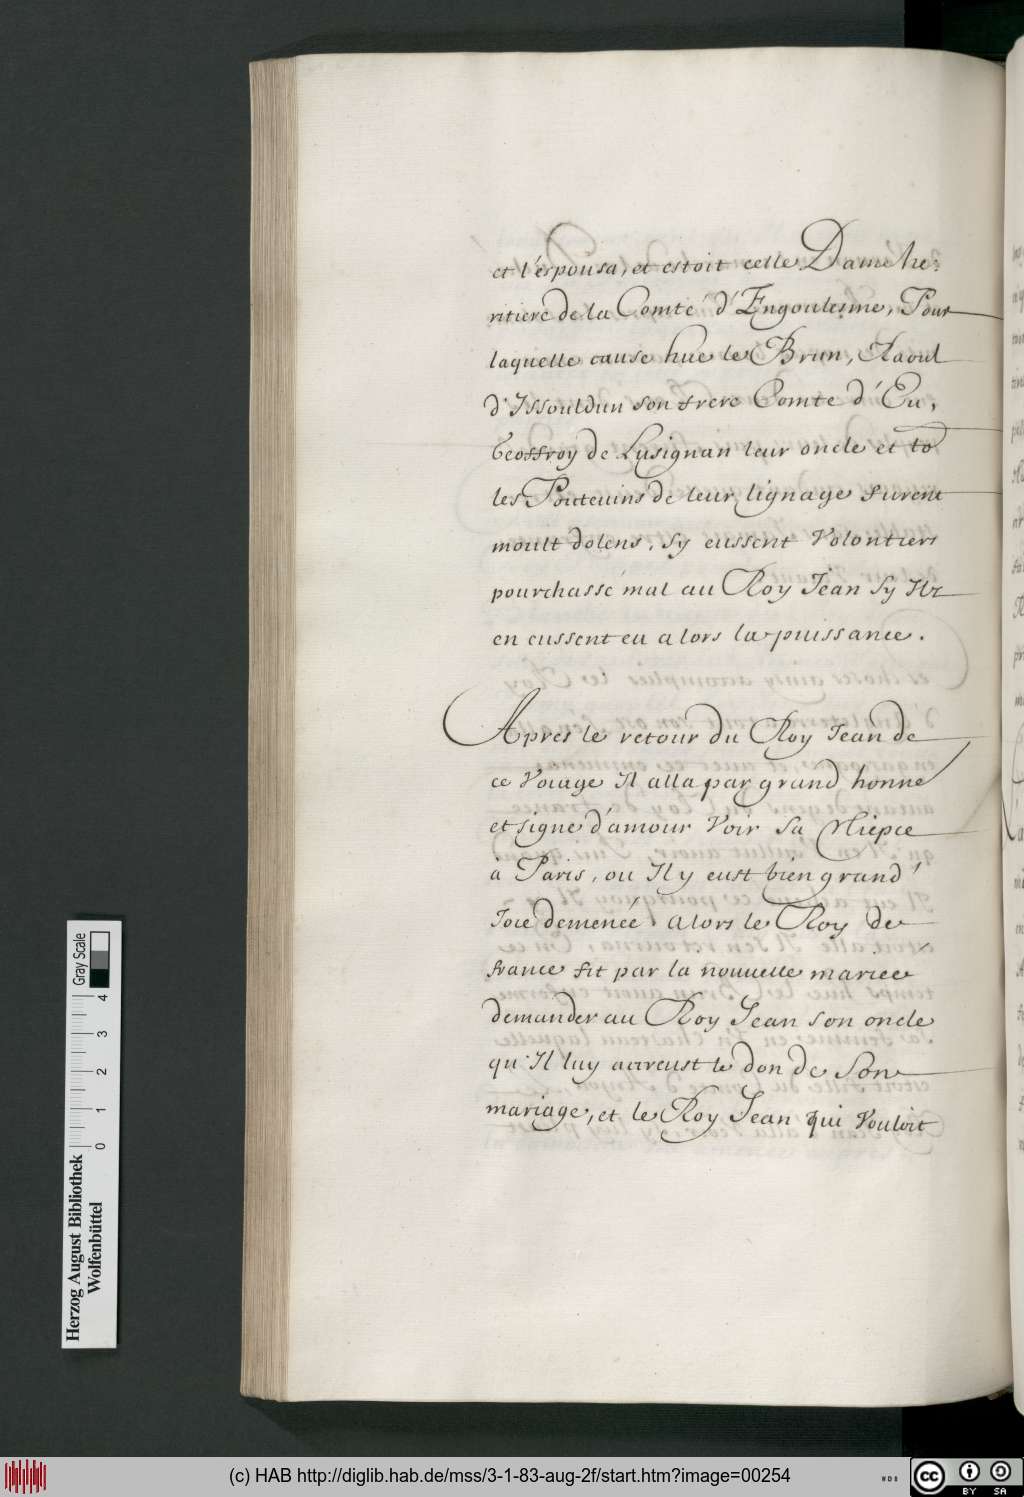 et l'espousa, et estoit celle Dame he:
ritiere de la Comté d'Engoulesme, Pour
laquelle cause hue le Brun, Raoul
d'Issouldun son frere Comte d'Eu,
Geoffroy de Lusignan leur oncle et to
les Poiteuins de leur lignage furent
moult dolens, Sy eussent Volontiers
pourchassé mal au Roy Jean Sy Ilz
en eussent eu alors la puissance.
Apres le retour du Roy Jean de
ce Voiage Il alla par grand honne
et signe d'amour Voir Sa Niepce
à Paris, ou Il y eust bien grand
Joie demenée. Alors le Roy de
france fit par la nouuelle mariee
demander au Roy Jean son oncle
qu'Il luy accreust le don de Son
mariage, et le Roy Jean qui Vouloit
Gray Scale
0 1 2 3 4
Herzog August Bibliothek
Wolfenbüttel
(c) HAB http://diglib.hab.de/mss/3-1-83-aug-2f/start.htm?image=00254
WDB
cc BY SA